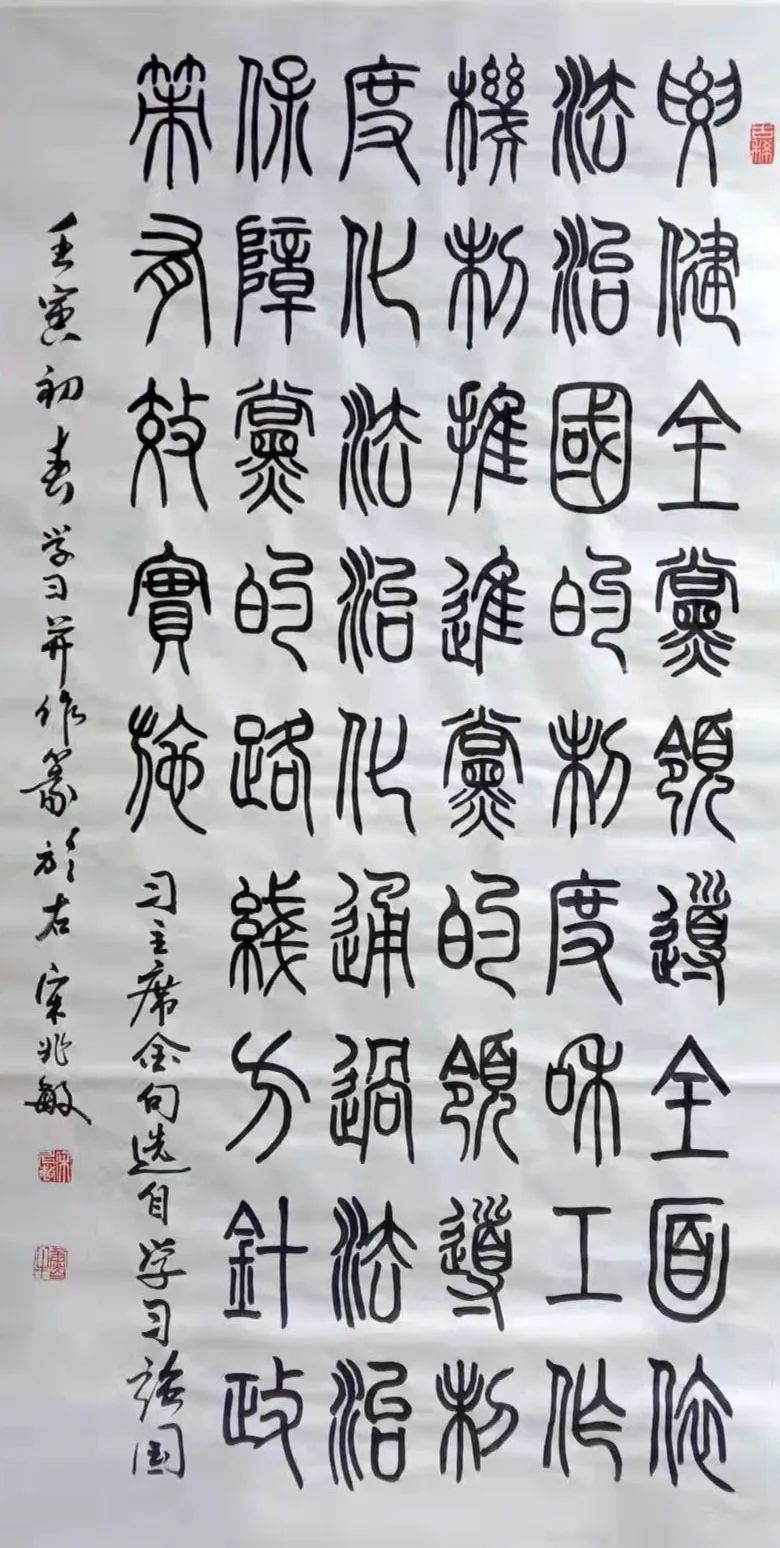 要健全黨領導全面依
法治國的制度和工作
機制推進黨的領導制
度化法治化通過法治
保障黨的路綫方針政
策有效實施
习主席金句选自学习强国
壬寅初春学习并作篆於右宋兆敏